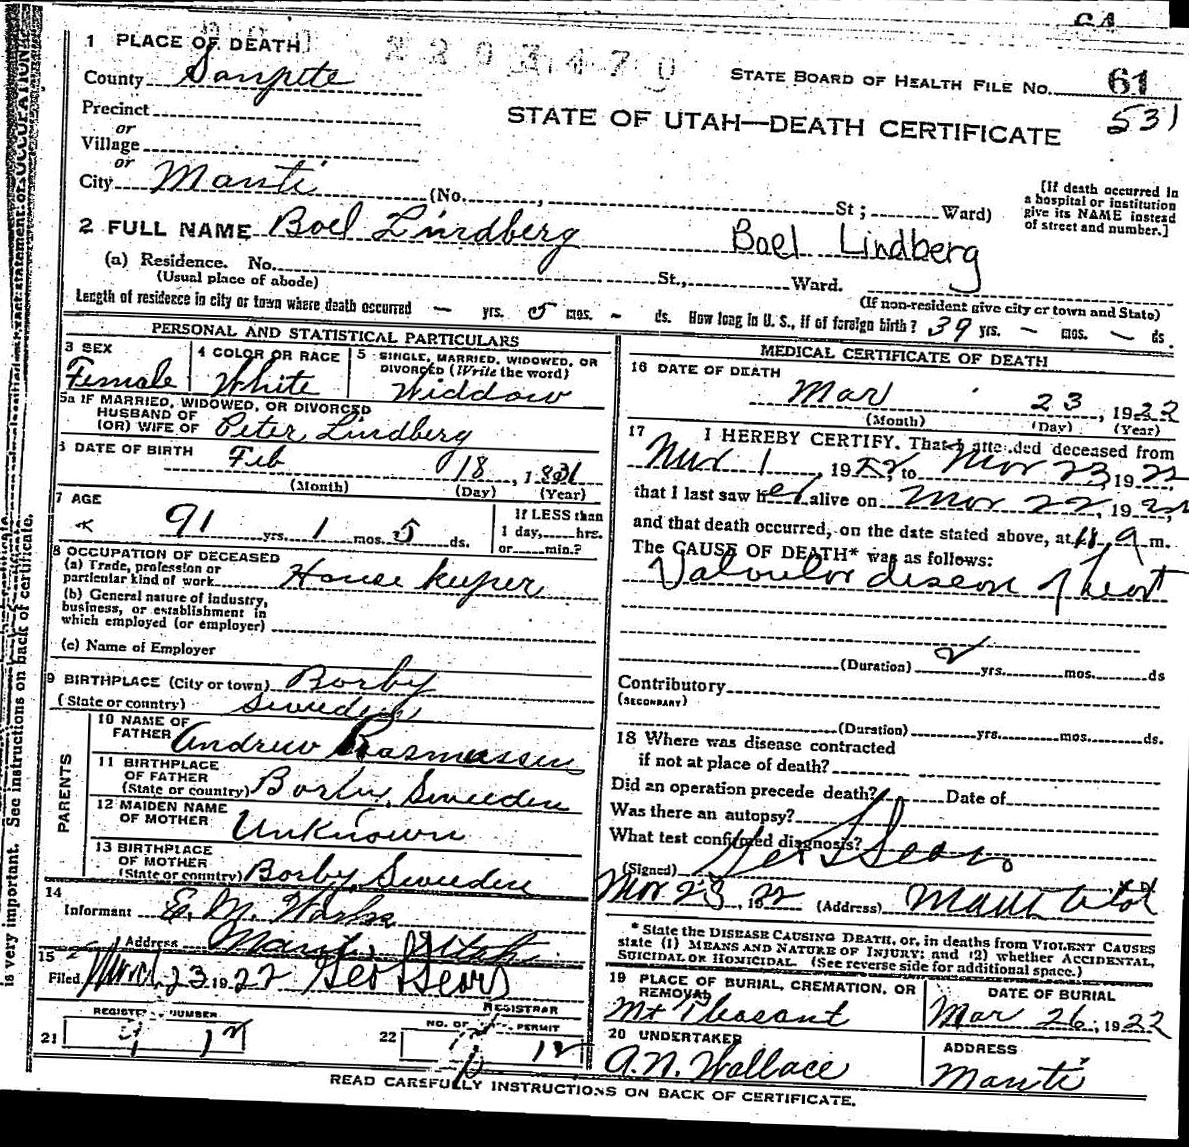 CA
2203470
1 PLACE OF DEATH
STATE BOARD OF HEALTH FILE No. 61
County Sanpete
531
STATE OF UTAH—DEATH CERTIFICATE
Precinct
or
Village
or
City Manti (No. , St; Ward)
[If death occurred in
a hospital or institution
give its NAME instead
of street and number.]
2 FULL NAME Boel Lindberg Boel Lindberg
(a) Residence. No. St., Ward.
(Usual place of abode)
(If non-resident give city or town and State)
Length of residence in city or town where death occurred — yrs. 5 mos. - ds. How long in U. S., if of foreign birth? 39 yrs. — mos. — ds.
PERSONAL AND STATISTICAL PARTICULARS
3 SEX
Female
4 COLOR OR RACE
White
5 SINGLE, MARRIED, WIDOWED, OR
DIVORCED (Write the word)
Widdow
5a IF MARRIED, WIDOWED, OR DIVORCED
HUSBAND OF
(OR) WIFE OF Peter Lindberg
6 DATE OF BIRTH Feb 18, 1831
(Month) (Day) (Year)
7 AGE
91 yrs. 1 mos. 5 ds.
If LESS than
1 day, hrs.
or min.?
8 OCCUPATION OF DECEASED
(a) Trade, profession or
particular kind of work House keeper
(b) General nature of industry,
business, or establishment in
which employed (or employer)
(c) Name of Employer
9 BIRTHPLACE (City or town) Borby
(State or country) Sweeden
PARENTS
10 NAME OF
FATHER Andrew Rasmussen
11 BIRTHPLACE
OF FATHER
(State or country) Borby, Sweeden
12 MAIDEN NAME
OF MOTHER Unknown
13 BIRTHPLACE
OF MOTHER
(State or country) Borby Sweeden
14
Informant E. M.
Address Manti, Utah
15
Filed March 23 1922 Geo Sears
REGISTRAR
21 REGISTER NUMBER
22 NO. OF PERMIT
12
MEDICAL CERTIFICATE OF DEATH
16 DATE OF DEATH
Mar 23, 1922
(Month) (Day) (Year)
17 I HEREBY CERTIFY, That I attended deceased from
Mar 1, 1922, to Mar 23, 1922
that I last saw her alive on Mar 22, 1922,
and that death occurred, on the date stated above, at a m.
The CAUSE OF DEATH* was as follows:
Valvular disease of heart
(Duration) 2 yrs. mos. ds
Contributory
(SECONDARY)
(Duration) yrs. mos. ds.
18 Where was disease contracted
if not at place of death?
Did an operation precede death? Date of
Was there an autopsy?
What test confirmed diagnosis?
(Signed) Geo Sears
Mar 23, 1922 (Address) Manti Utah
* State the DISEASE CAUSING DEATH, or, in deaths from VIOLENT CAUSES
state (1) MEANS AND NATURE OF INJURY; and (2) whether ACCIDENTAL,
SUICIDAL or HOMICIDAL. (See reverse side for additional space.)
19 PLACE OF BURIAL, CREMATION, OR
REMOVAL
Mt Pleasant
DATE OF BURIAL
Mar 26, 1922
20 UNDERTAKER
A. N. Wallace
ADDRESS
Manti
READ CAREFULLY INSTRUCTIONS ON BACK OF CERTIFICATE.
is very important. See instructions on back of certificate.